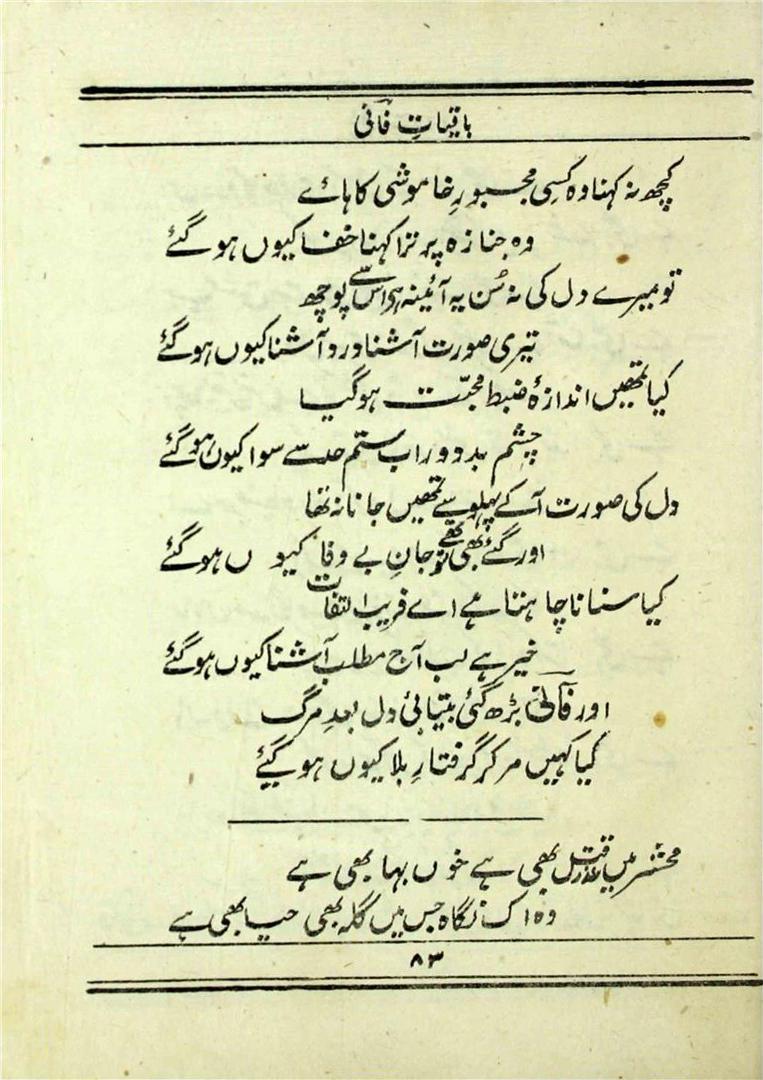 باقیاتِ فانی
کچھ نہ کہنا وہ کسی مجبورِ خاموشی کا ہائے
وہ جنازہ پر ترا کہنا خفا کیوں ہو گئے
تو میرے دل کی نہ سُن یہ آئینہ ہو اس سے پوچھ
تیری صورت آشنا درد آشنا کیوں ہو گئے
کیا تمھیں اندازۂ ضبط محبّت ہو گیا
چشم بد دور اب ستم حد سے سوا کیوں ہو گئے
دل کی صورت آکے پہلو سے تمھیں جانا نہ تھا
اور گئے بھی تھے تو جانِ بے وفا کیوں ہو گئے
کیا سنانا چاہتا ہے اے فریب التفات
خیر ہے لب آج مطلب آشنا کیوں ہو گئے
اور فانی بڑھ گئی بیتابئ دل بعدِ مرگ
کیا کہیں مر کر گرفتارِ بلا کیوں ہو گیے
محشر میں عذرِ قتل بھی ہے خوں بہا بھی ہے
وہ اک نگاہ جس میں گلہ بھی حیا بھی ہے
۸۳